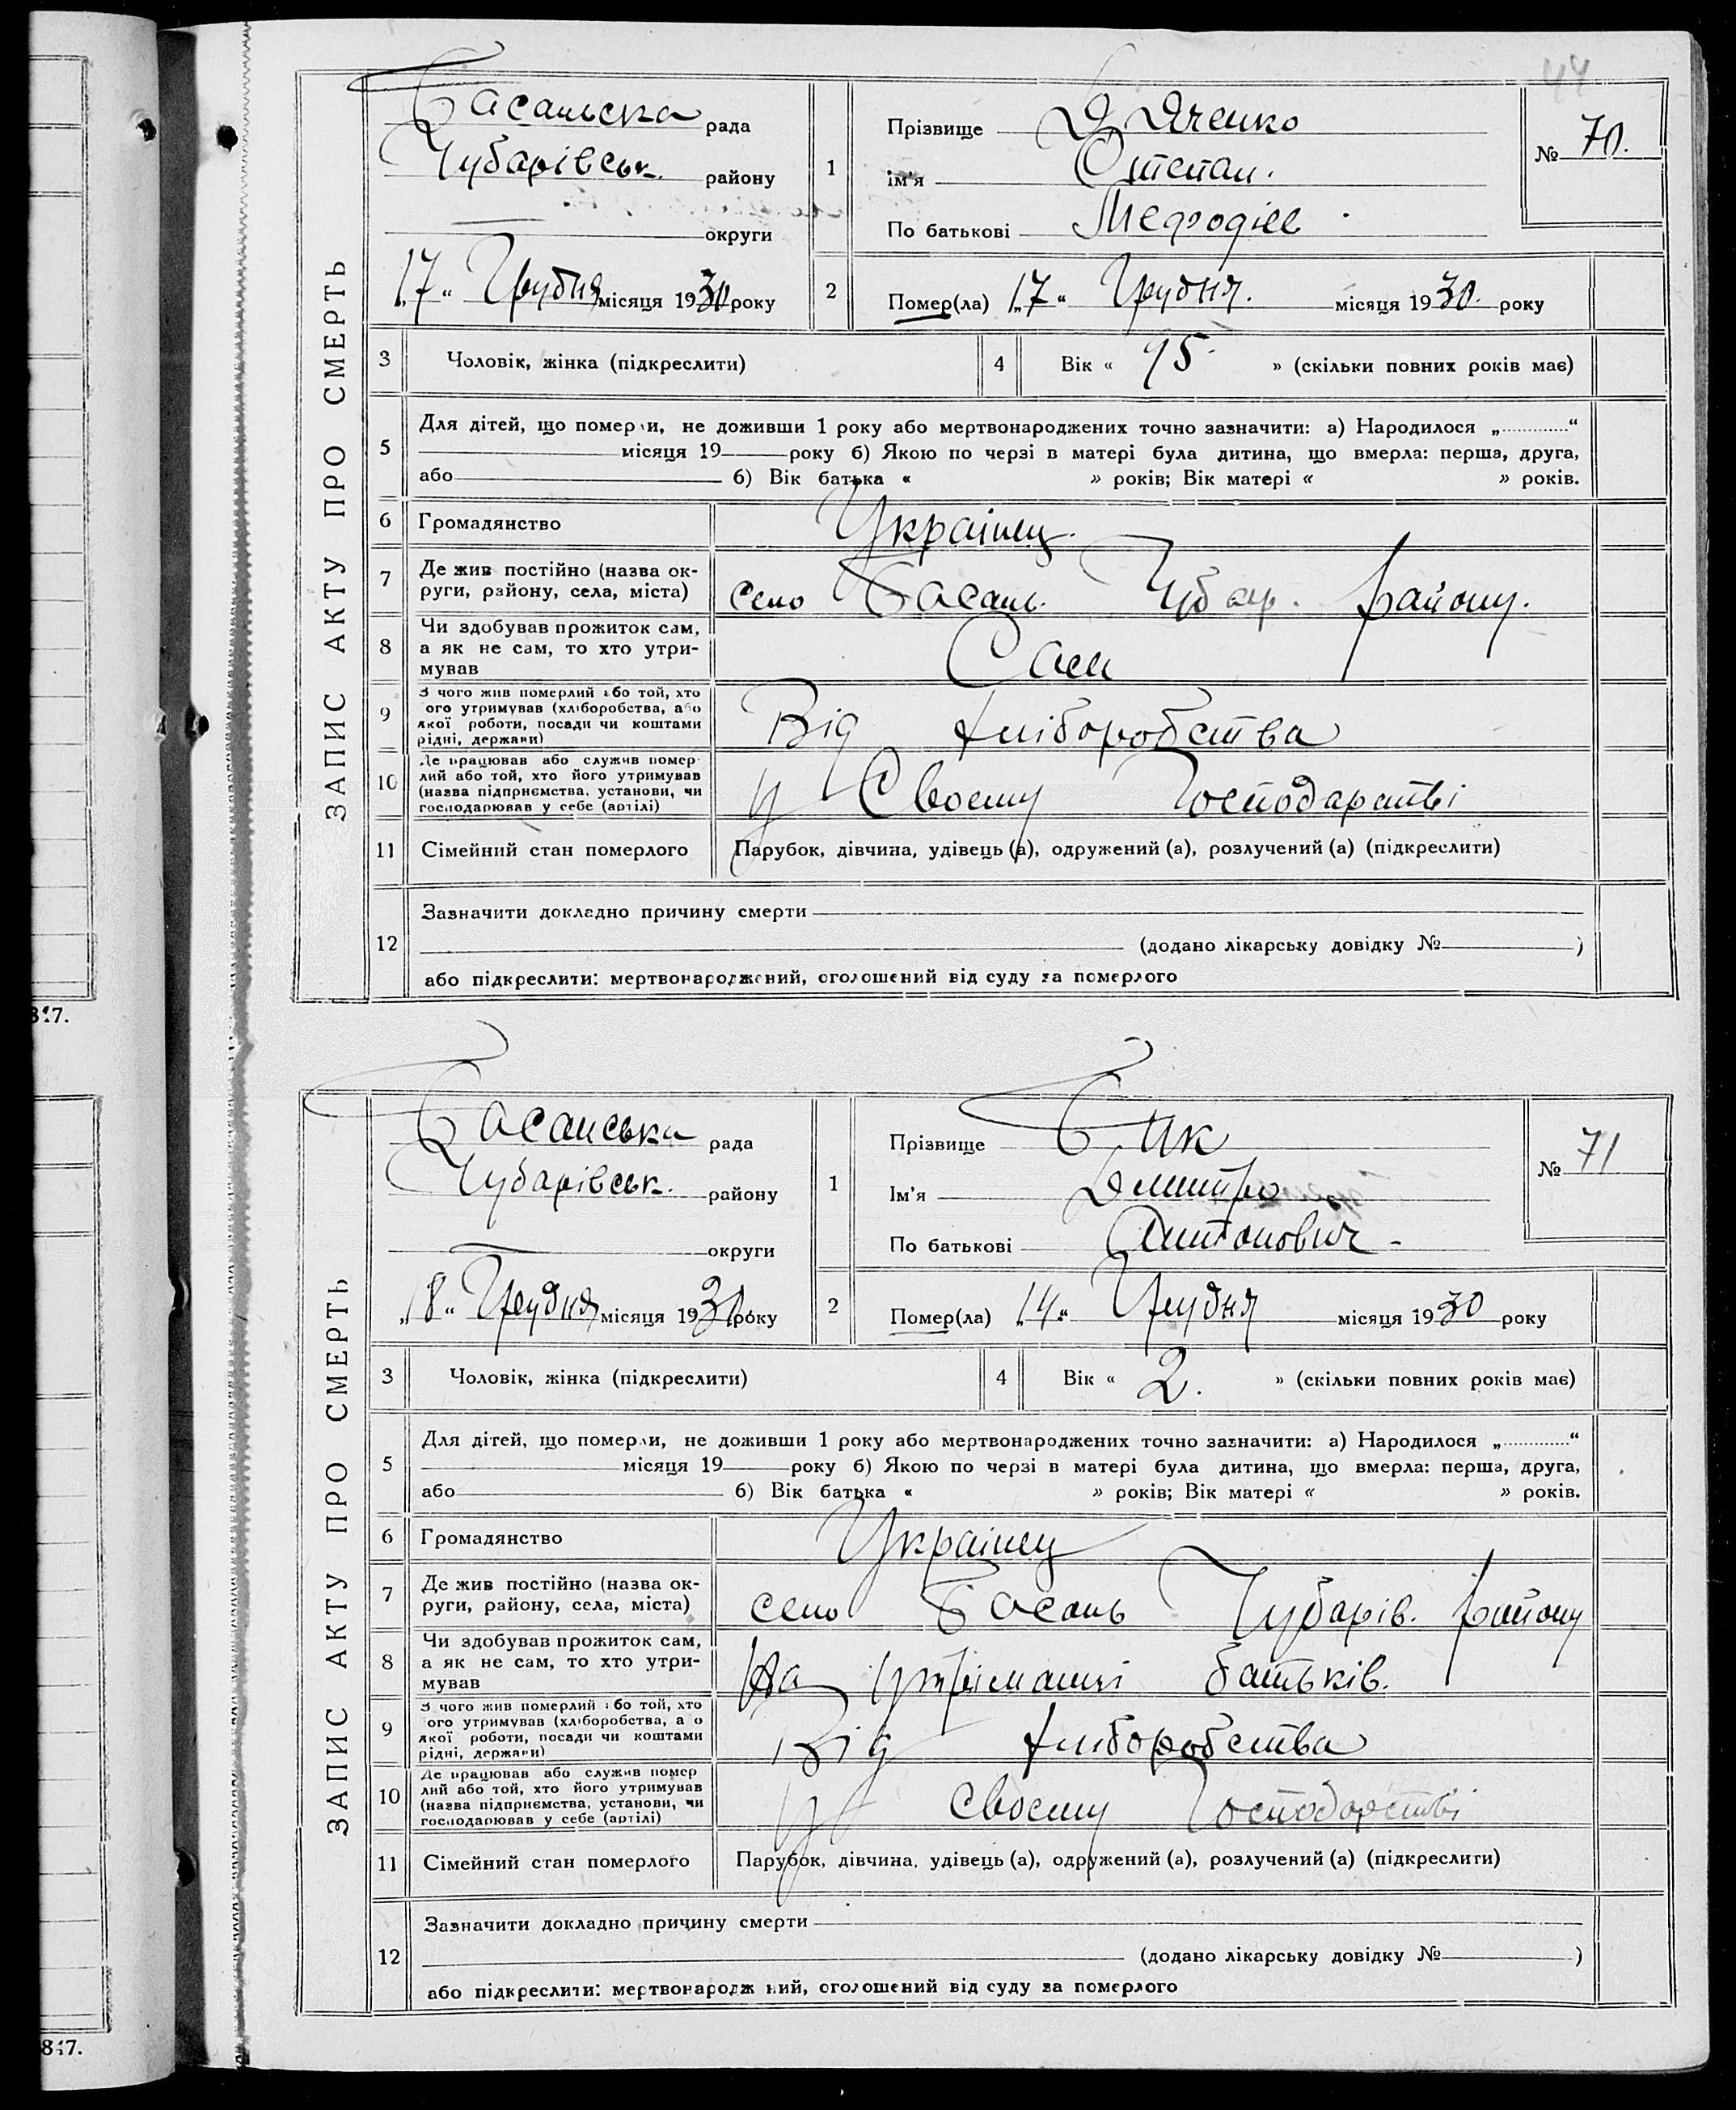 44
ЗАПИС АКТУ ПРО СМЕРТЬ
Басанська рада
Чубарівськ. району
округи
„17“ Грудня місяця 1930 року
1
Прізвище Дяченко
ім'я Степан.
По батькові Мефодіев
№ 70.
2
Помер(ла) „17“ Грудня. місяця 1930. року
3 Чоловік, жінка (підкреслити)
4 Вік « 95 » (скільки повних років має)
5
Для дітей, що померли, не доживши 1 року або мертвонароджених точно зазначити: а) Народилося „............“
місяця 19 року б) Якою по черзі в матері була дитина, що вмерла: перша, друга,
або б) Вік батька « » років; Вік матері « » років.
6 Громадянство Українец.
7 Де жив постійно (назва ок-
руги, району, села, міста) село Басань. Чубар. району.
8 Чи здобував прожиток сам,
а як не сам, то хто утри-
мував Сам
9 З чого жив померлий або той, хто
ого утримував (хліборобства, або
якої роботи, посади чи коштами
рідні, держави) Від хліборобства
10 Де працював або служив помер-
лий або той, хто його утримував
(назва підприємства, установи, чи
господарював у себе (артілі) у Своему Господарстві
11 Сімейний стан померлого Парубок, дівчина, удівець (а), одружений (а), розлучений (а) (підкреслити)
12
Зазначити докладно причину смерти
(додано лікарську довідку № )
або підкреслити: мертвонароджений, оголошений від суду за померлого
817.
ЗАПИС АКТУ ПРО СМЕРТЬ
Басанська рада
Чубарівськ. району
округи
„18“ Грудня місяця 1930 року
1
Прізвище Бик
Ім'я Дмитро
По батькові Антонович -
№ 71
2
Помер(ла) „14“ Грудня місяця 1930 року
3 Чоловік, жінка (підкреслити)
4 Вік « 2. » (скільки повних років має)
5
Для дітей, що померли, не доживши 1 року або мертвонароджених точно зазначити: а) Народилося „............“
місяця 19 року б) Якою по черзі в матері була дитина, що вмерла: перша, друга,
або б) Вік батька « » років; Вік матері « » років.
6 Громадянство Українец
7 Де жив постійно (назва ок-
руги, району, села, міста) село Басань Чубарів. району
8 Чи здобував прожиток сам,
а як не сам, то хто утри-
мував На утріманні батьків.
9 З чого жив померлий або той, хто
ого утримував (хліборобства, а о
якої роботи, посади чи коштами
рідні, держави) Від хліборобства
10 Де працював або служив помер
лий або той, хто його утримував
(назва підприємства, установи, чи
господарював у себе (артілі) у своему Господарстві
11 Сімейний стан померлого Парубок, дівчина, удівець (а), одружений (а), розлучений (а) (підкреслити)
12
Зазначити докладно причину смерти
(додано лікарську довідку № )
або підкреслити: мертвонародж ний, оголошений від суду за померлого
817.